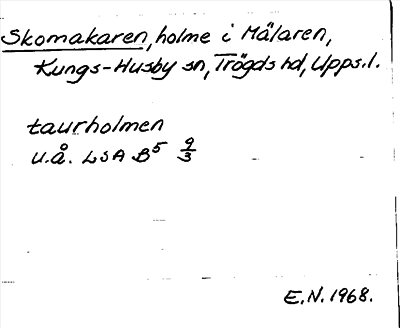 Skomakaren, holme i Mälaren,
Kungs-Husby sn, Trögds hd, Upps.l.
taurholmen
u.å. LSA B⁵ 9/3
E.N. 1968.